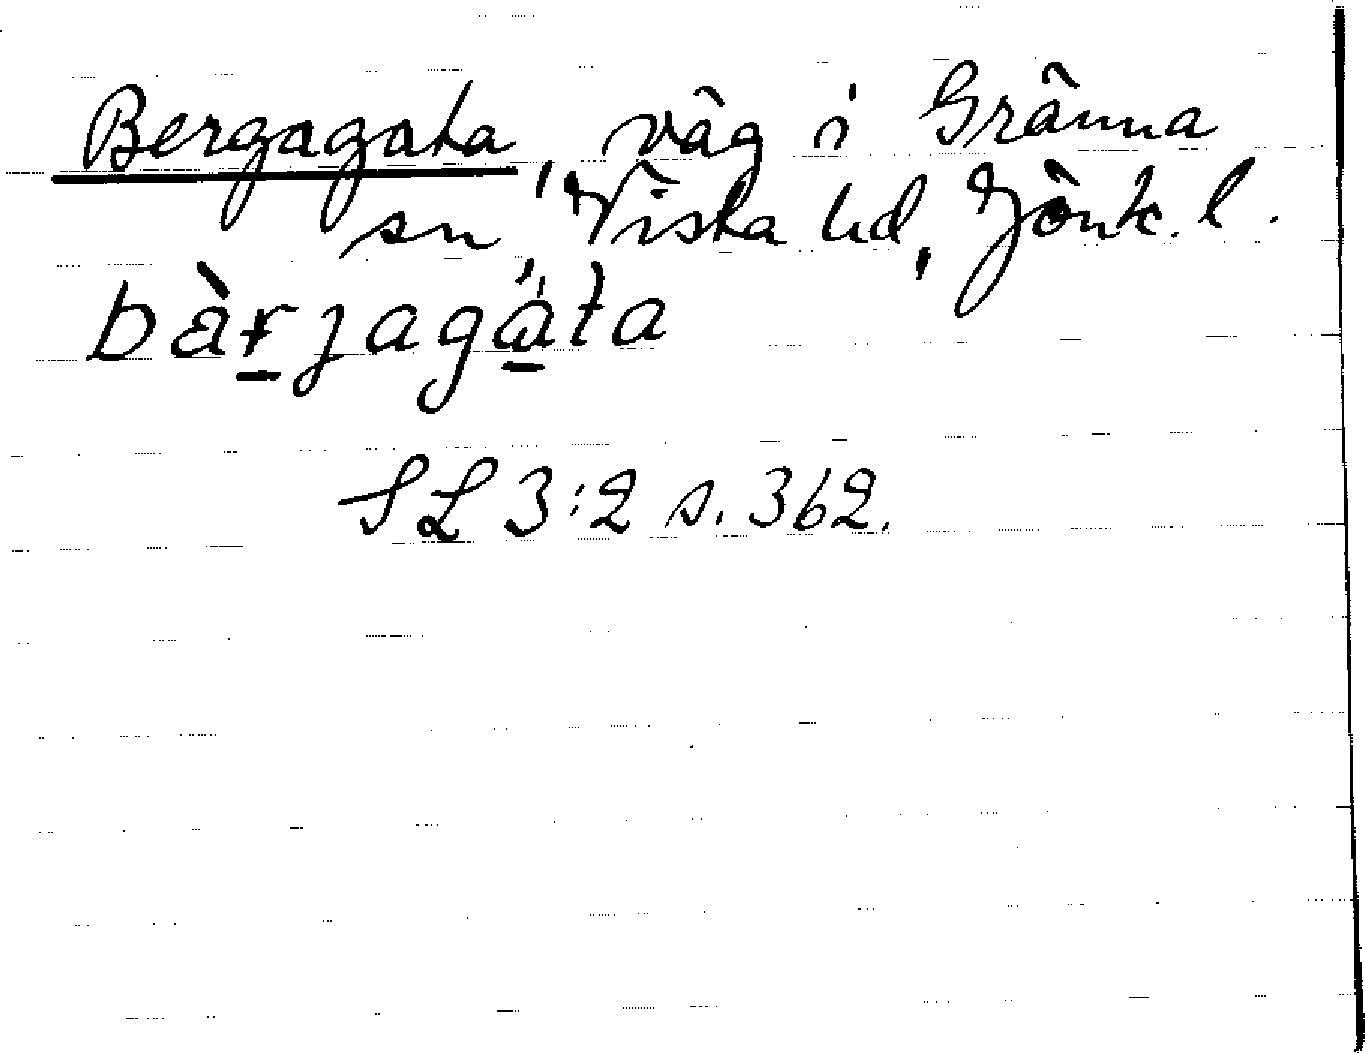 Bergagata, väg i Gränna
sn, Vista hd, Jönk. l.
bàrjagáta
SL 3:2 s. 362.